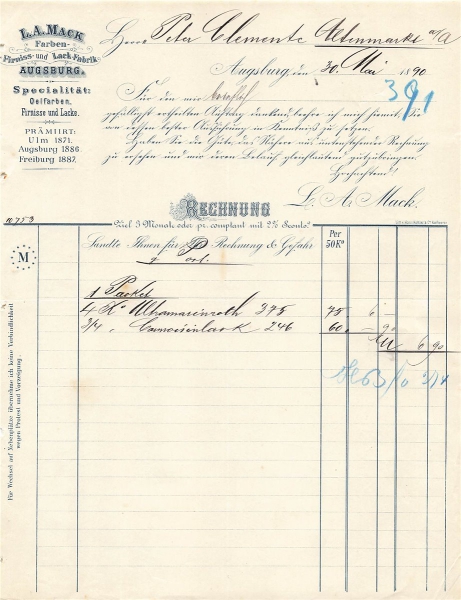 L. A. MACK
Farben-
Firniss- und Lack-Fabrik
AUGSBURG.
Specialität:
Oelfarben,
Firnisse und Lacke.
PRÄMIIRT:
Ulm 1871.
Augsburg 1886.
Freiburg 1887.
Herrn Peter Clement Altenmarkt a/A
Augsburg, den 30. Mai 1890
391
Für den mir
gefälligst ertheilten Auftrag dankend, beehre ich mich hiermit, Sie
von dessen bester Ausführung in Kenntniß zu setzen.
Haben Sie die Güte, das Nähere aus untenstehender Rechnung
zu ersehen und mir deren Belauf gleichlautend gutzubringen.
Hochachtend!
L. A. Mack.
RECHNUNG
10753
Ziel 3 Monate oder pr. comptant mit 2% Sconto.
Per
50 Ko
Sandte Ihnen für Rechnung & Gefahr
p. Post.
M
1 Packet
4 Ko Ultramarinroth 375 75 6 —
3/4 " Carmoisinlack 246 60 — 90
M 6 90
Für Wechsel auf Nebenplätze übernehme ich keine Verbindlichkeit
wegen Protest und Verzeigung.